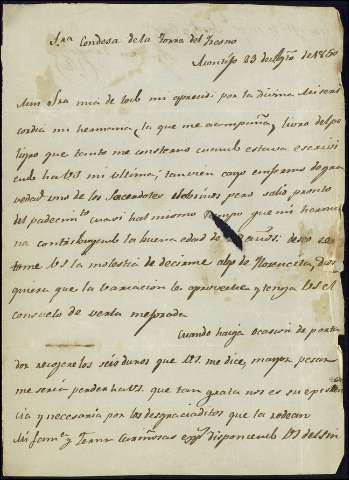 Sra Condesa de la Torre del Fresno
Montijo 23 de Agto de 1850
Muy Sra mia de todo mi aprecio por la divina Miseri
cordia mi hermana, la que me acompaña, libro del pe
ligro que tanto me consterno cuando estava escrivi
endo ha VS mi ultima; tanvien cayo enfermo de gra
vedad uno de los Sacerdotes pero salio pronto
del padecimto cuasi hal mismo tiempo que mi herma
na contribuyendo la buena edad de años: deseo se
tome VS la molestia de decirme algo de Florencita, Dios
quiera que la variacion le aproveche y tenga VS el
consuelo de verla mejorada
Cuando haiga ocasion de porta
dor recojere los seis duros que VS. me dice, mayor pesar
me seria perder ha VS. que tan grata nos es su existen
cia y necesaria por los desgraciaditos que la rodean
Mi fama y Terna cariñosas espes disponiendo VS del sin